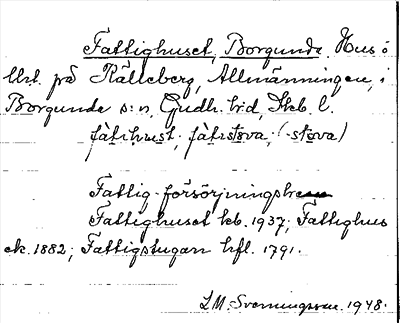 Fattighuset, Borgunda. Hus o
lht. på Rälleberg, Allmänningen, i
Borgunda s:n, Gudh. hd, Skb l.
fàtihust, fàtistova, (-stòva)
Fattig-försörjnings
Fattighuset kb. 1937; Fattighus
ek. 1882; Fattigstugan hfl. 1791.
I.M. Svenningsson. 1948.